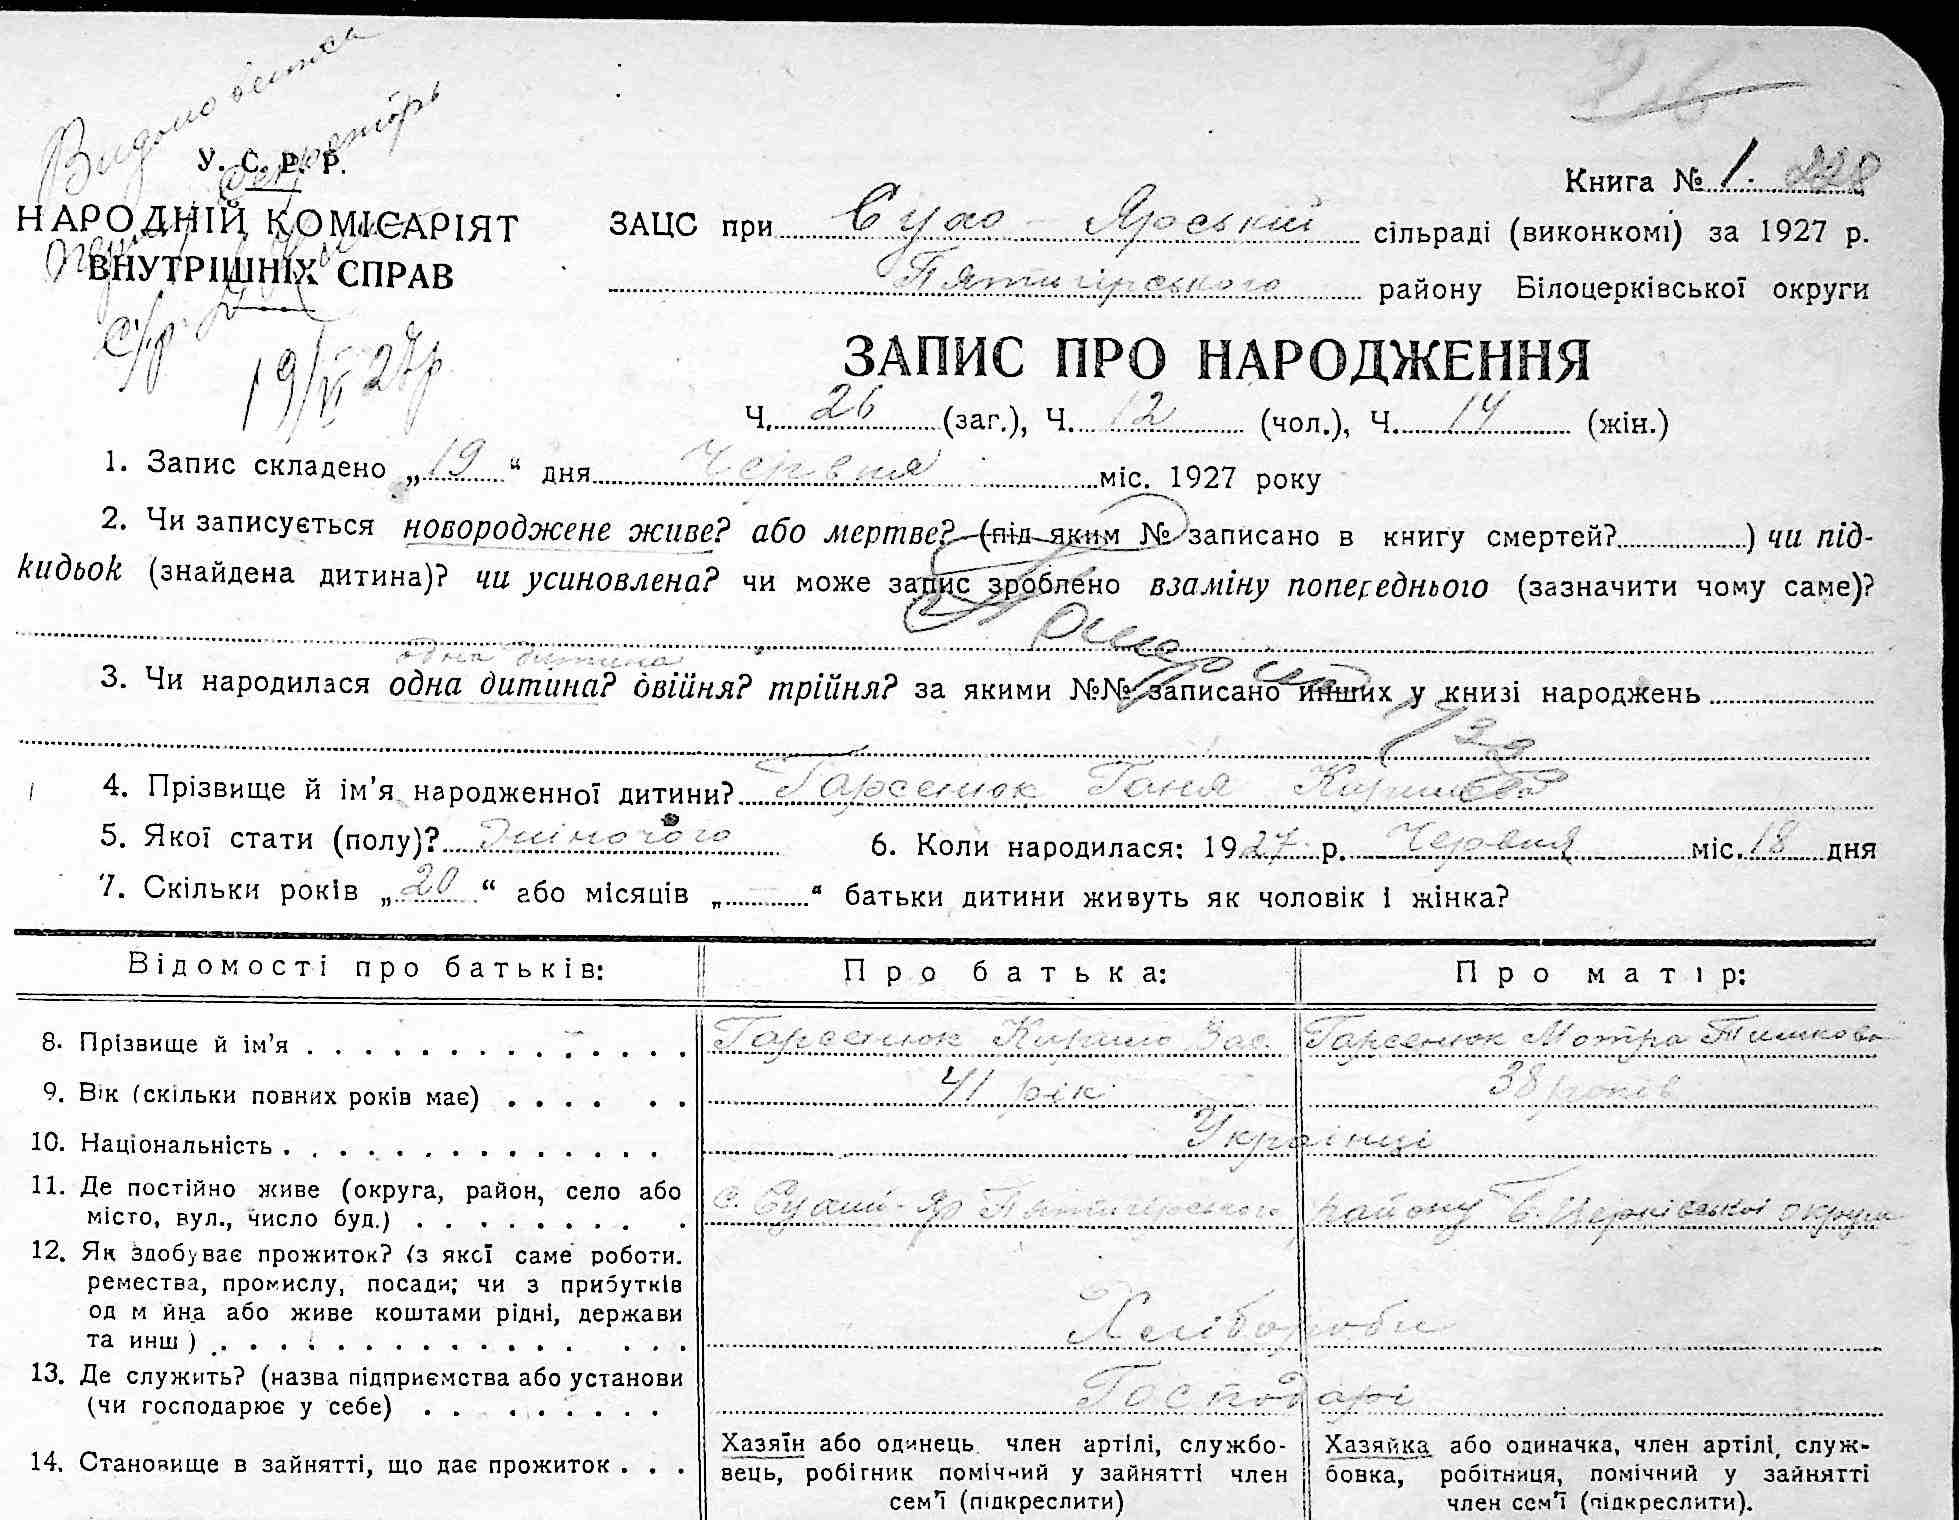 Видано виписа
У. С. Р. Р.
Секретарь
НАРОДНІЙ КОМІСАРІЯТ
ВНУТРІШНІХ СПРАВ
с/р
19/VI 27р.
Книга № 1. 228
ЗАЦС при Сухо-Ярській сільраді (виконкомі) за 1927 р.
Пятигірського району Білоцерківської округи
ЗАПИС ПРО НАРОДЖЕННЯ
Ч. 26 (заг.), Ч. 12 (чол.), Ч. 14 (жін.)
1. Запис складено „19“ дня Червня міс. 1927 року
2. Чи записується новороджене живе? або мертве? (під яким № записано в книгу смертей? ) чи під-
кидьок (знайдена дитина)? чи усиновлена? чи може запис зроблено взаміну попереднього (зазначити чому саме)?
одна дитина
3. Чи народилася одна дитина? двійня? трійня? за якими №№ записано инших у книзі народжень
4. Прізвище й ім'я народженної дитини? Гарсенюк Ганя Кирилова
5. Якої стати (полу)? Жіночого 6. Коли народилася: 1927 р. Червня міс. 18 дня
7. Скільки років „20“ або місяців „ “ батьки дитини живуть як чоловік і жінка?
Відомості про батьків: Про батька: Про матір:
8. Прізвище й ім'я Гарсенюк Кирило Вас. Гарсенюк Мотря Тимкова
9. Вік (скільки повних років має) 41 рік 38 років
10. Національність Українці
11. Де постійно живе (округа, район, село або
місто, вул., число буд.) с. Сухий-Яр Пятигірського району Б. Церківської округи
12. Як здобуває прожиток? (з якої саме роботи.
ремества, промислу, посади; чи з прибутків
од м йна або живе коштами рідні, держави
та инш) Хлібороби
13. Де служить? (назва підприємства або установи
(чи господарює у себе) Господарі
14. Становище в зайнятті, що дає прожиток
Хазяїн або одинець член артілі, службо-
вець, робітник помічний у зайнятті член
сем'ї (підкреслити)
Хазяйка або одиначка, член артілі, служ-
бовка, робітниця, помічний у зайнятті
член сем'ї (підкреслити).